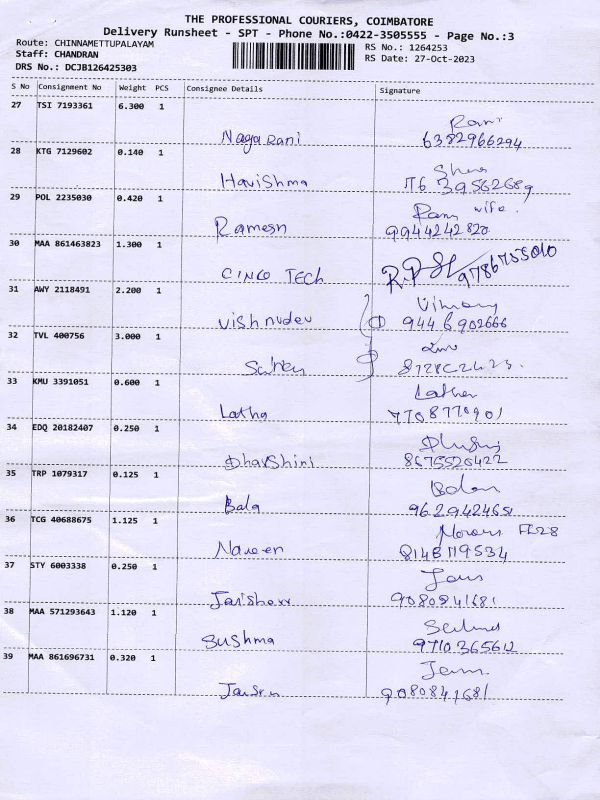 THE PROFESSIONAL COURIERS, COIMBATORE
Delivery Runsheet - SPT - Phone No.:0422-3505555 - Page No.:3
Route: CHINNAMETTUPALAYAM
RS No.: 1264253
Staff: CHANDRAN
RS Date: 27-Oct-2023
DRS No.: DCJB126425303
S No Consignment No Weight PCS Consignee Details Signature
27 TSI 7193361 6.300 1
Rani
Nagarani 6382966294
28 KTG 7129602 0.140 1
Havishma
29 POL 2235030 0.420 1
Ram wife.
Ramesh 9944242820
30 MAA 861463823 1.300 1
CINCO TECH
31 AWY 2118491 2.200 1
Vishnudev 9446902666
32 TVL 400756 3.000 1
33 KMU 3391051 0.600 1
Latha
Latha 7708770901
34 EDQ 20182407 0.250 1
Dharshini 8675526422
35 TRP 1079317 0.125 1
Bala 9629424651
36 TCG 40688675 1.125 1
FF28
Naveen 8148119534
37 STY 6003338 0.250 1
9080841681
38 MAA 571293643 1.120 1
Sushma 9710365612
39 MAA 861696731 0.320 1
9080841681